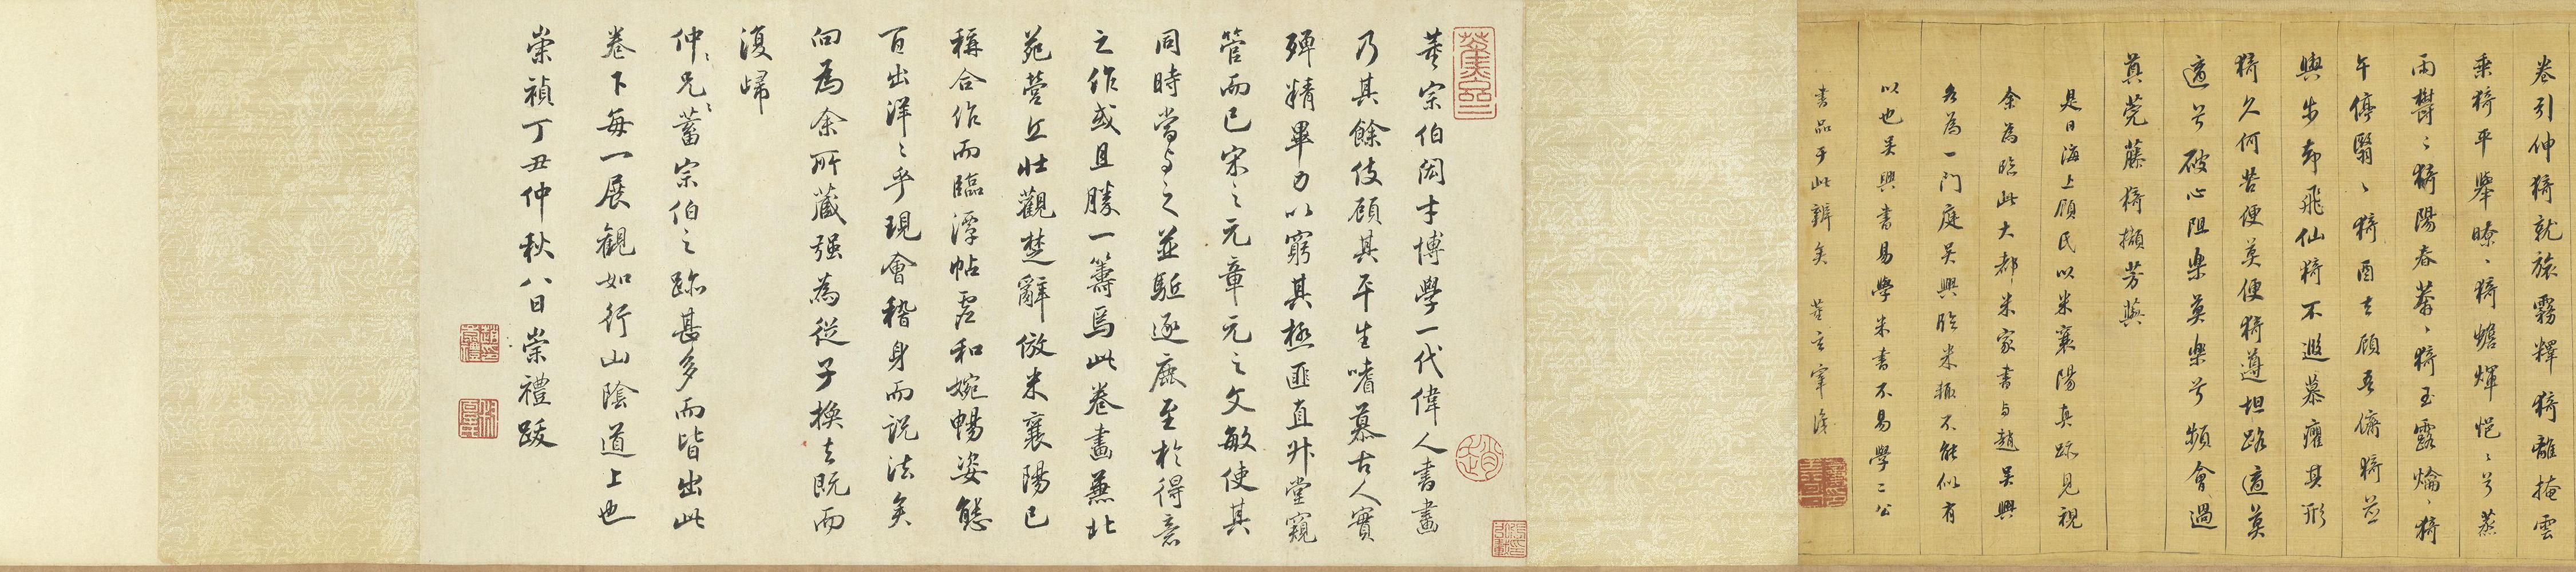 卷引伸猗就旅霧釋猗離掩雲
乘猗平舉暸〻猗蟾煇悒〻兮蒸
雨鬱〻猗陽春萋〻猗玉露爚〻猗
午停翳〻猗酉吉顧吾儕猗並
輿步郤飛仙猗不遐慕癯其形
猗久何苦便莫便猗遵坦路適莫
適兮破心阻樂莫樂兮頻會過
莫莞藤猗擷芳蕪
是日海上顧氏以米襄陽真跡見視
余為臨此大都米家書與趙吳興
各為一門庭吳興臨米輒不能似有
以也吳興書易學米書不易學二公
書品于此辨矣 董玄宰識
董宗伯閎才博學一代偉人書畫
乃其餘伎顧其平生嗜慕古人實
殫精畢力以窮其極匪直升堂窺
管而已宋之元章元之文敏使其
同時當與之並驅逐鹿至於得意
之作或且勝一籌焉此卷畫兼北
苑營丘壯觀楚辭倣米襄陽已
稱合作而臨潭帖虛和婉暢姿態
百出洋〻乎現會稽身而說法矣
向為余所藏強為從子換去既而
復歸
仲〻兄〻蓄宗伯之跡甚多而皆出此
卷下每一展觀如行山陰道上也
崇禎丁丑仲秋八日崇禮跋